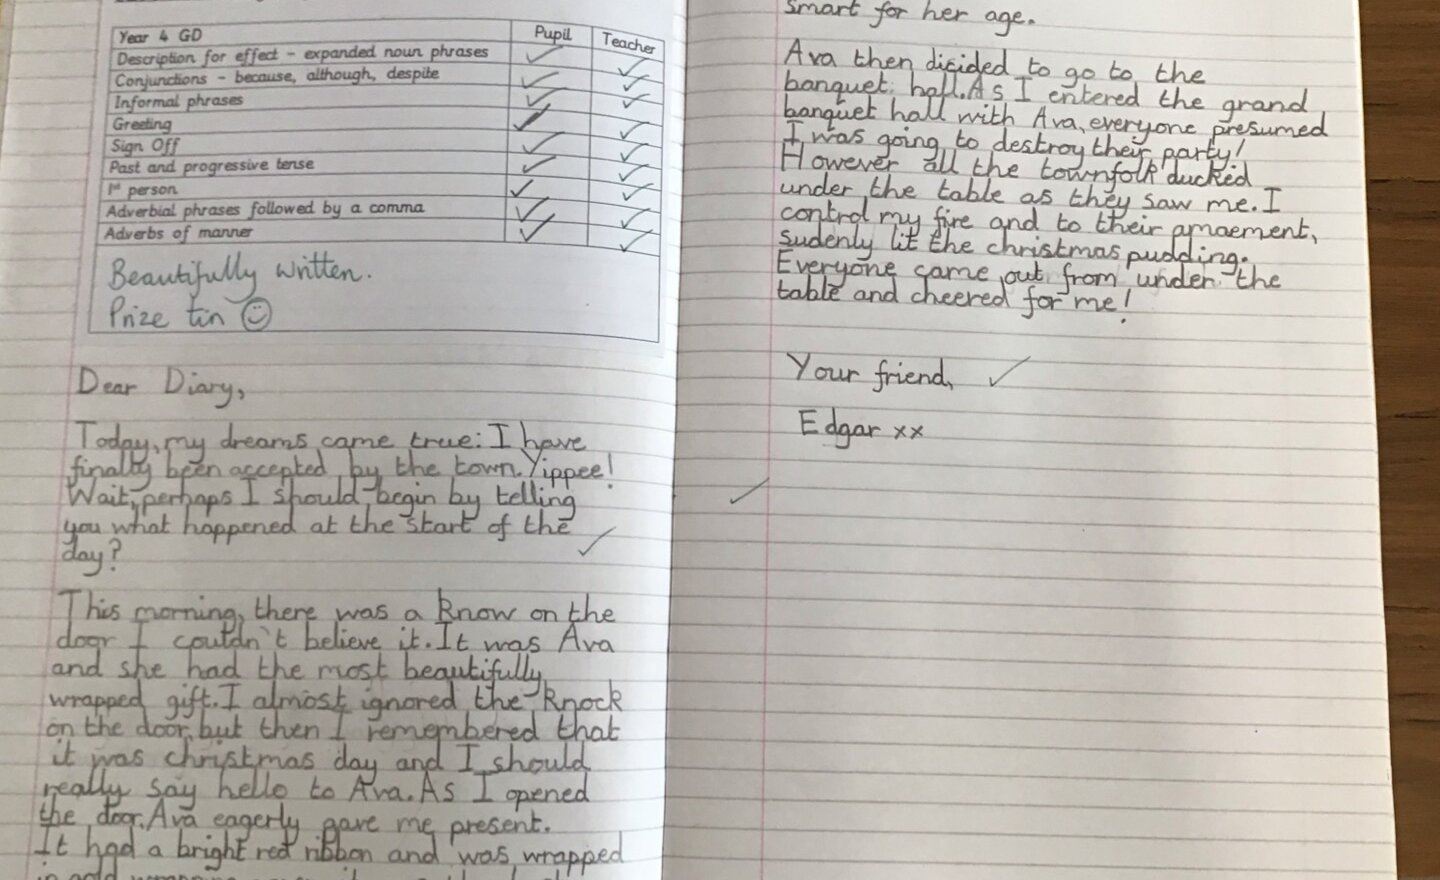 Year 4 GD Pupil Teacher
Description for effect – expanded noun phrases
Conjunctions – because, although, despite
Informal phrases
Greeting
Sign Off
Past and progressive tense
1st person
Adverbial phrases followed by a comma
Adverbs of manner
Beautifully written.
Prize tin
Dear Diary,
Today, my dreams came true: I have
finally been accepted by the town. Yippee!
Wait, perhaps I should begin by telling
you what happened at the start of the
day?
This morning, there was a know on the
door I coutdn't believe it. It was Ava
and she had the most beautifully
wrapped gift. I almost ignored the knock
on the door, but then I remembered that
it was christmas day and I should
really say hello to Ava. As I opened
the door, Ava eagerly gave me present.
It had a bright red ribbon and was wrapped
in gold
smart for her age.
Ava then dicided to go to the
banquet hall. As I entered the grand
banquet hall with Ava, everyone presumed
I was going to destroy their party!
However all the townfolk ducked
under the table as they saw me. I
control my fire and to their amaement,
sudenly lit the christmas pudding.
Everyone came out from under the
table and cheered for me!
Your friend,
Edgar xx